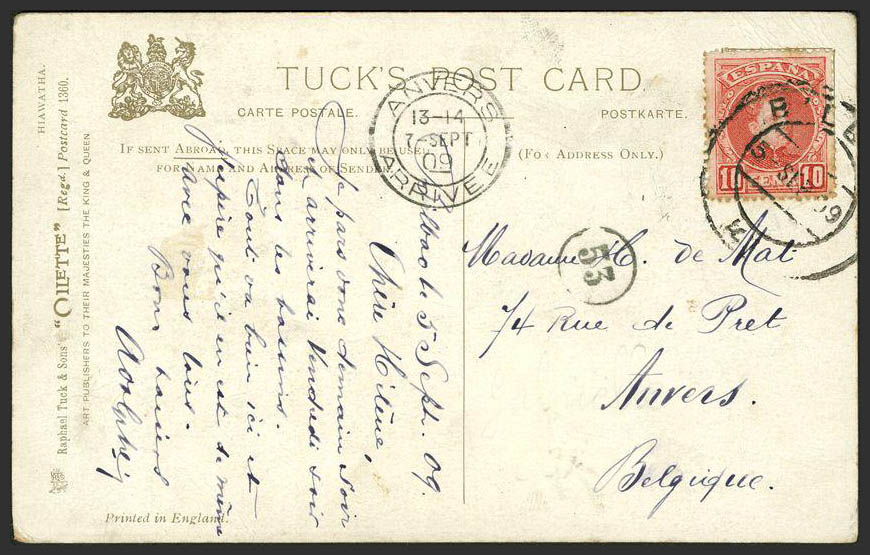 TUCK'S POST CARD.
CARTE POSTALE.
POSTKARTE.
IF SENT ABROAD, THIS SPACE MAY ONLY BE USED
FOR NAME AND ADDRESS OF SENDER.
(FOR ADDRESS ONLY.)
HIAWATHA.
Raphael Tuck & Sons' "OILETTE" [Regd.] Postcard 1360.
ART PUBLISHERS TO THEIR MAJESTIES THE KING & QUEEN
Printed in England.
ANVERS
13-14
7 SEPT
09
ARRIVEE
ESPAÑA
10 10
53
Bilbao le 5 Sept. 09.
Chère Hélène,
Je pars donc demain soir
et arriverai Vendredi soir
dans les bassins.
Tout va bien ici et
j'espère qu'il en est de même
avec vous tous.
Bons baisers
Adolphe
Madame H. de Mat
74 Rue de Pret
Anvers.
Belgique.